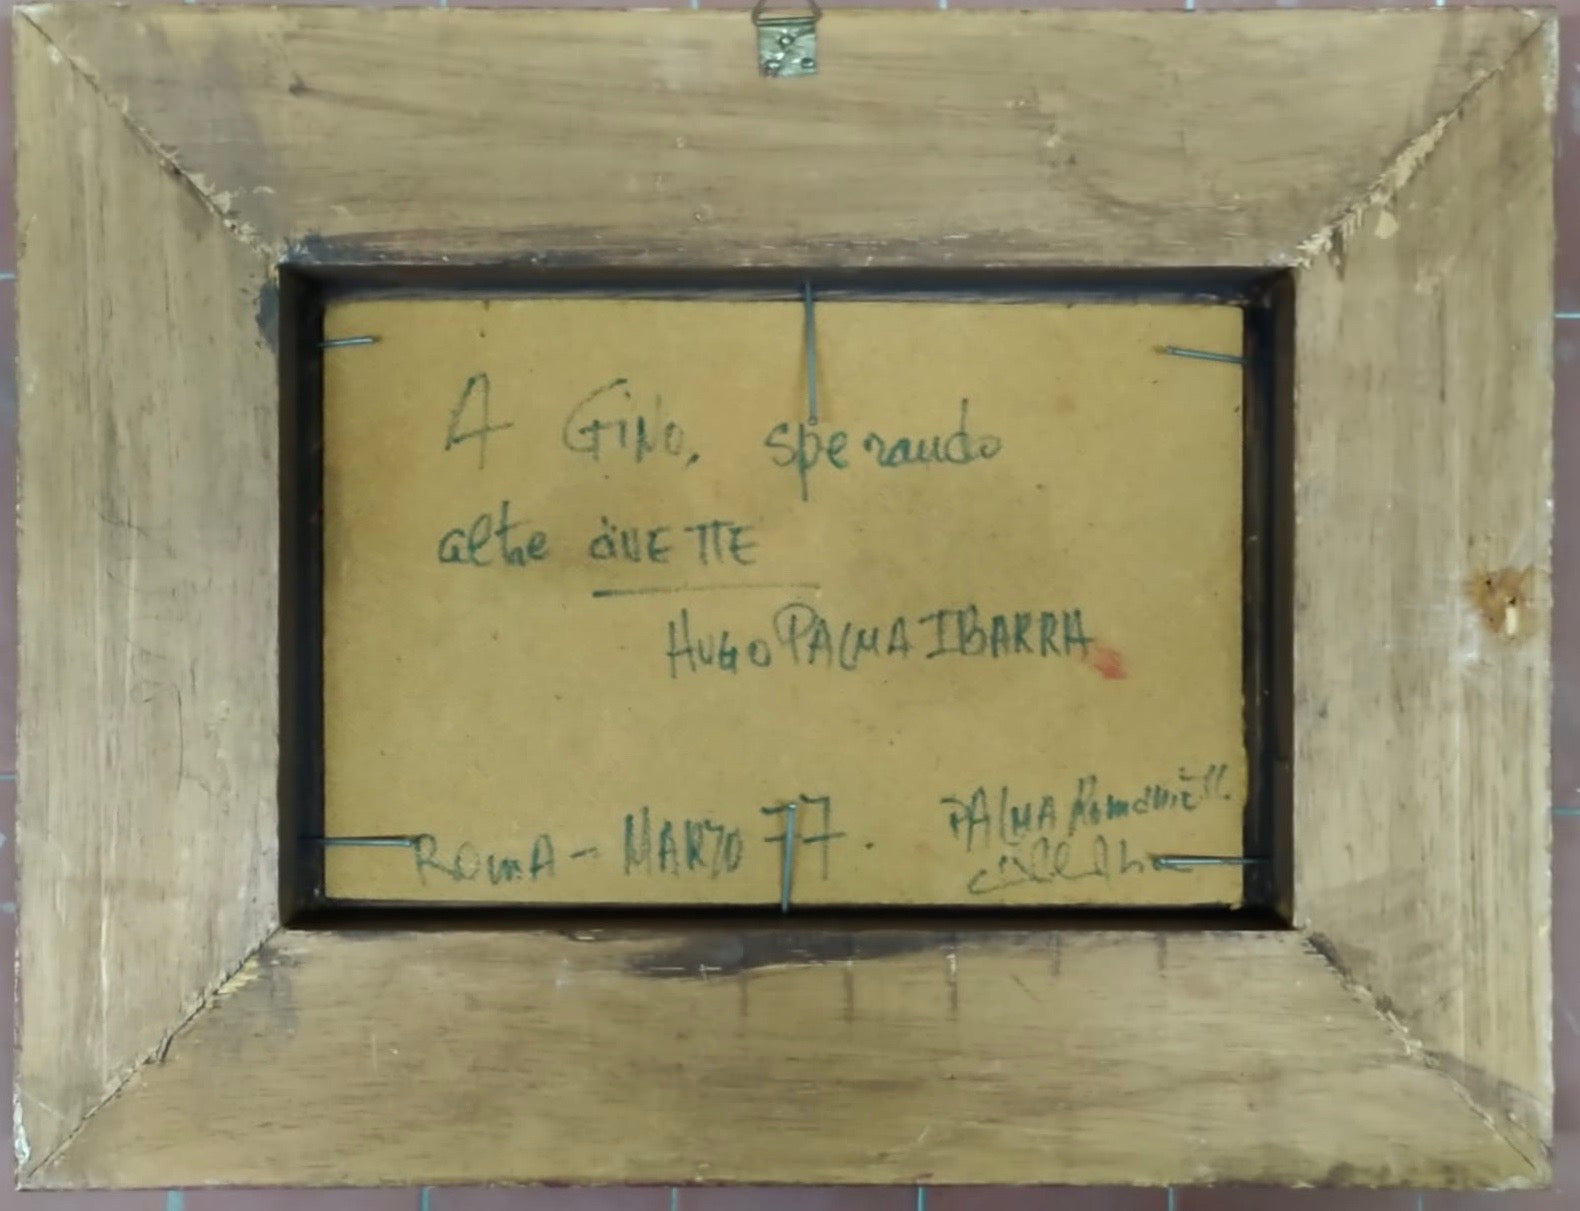 A GiNo, sperando
altre
HUGO PALMA IBARRA
ROMA - MARZO 77.
PALMA